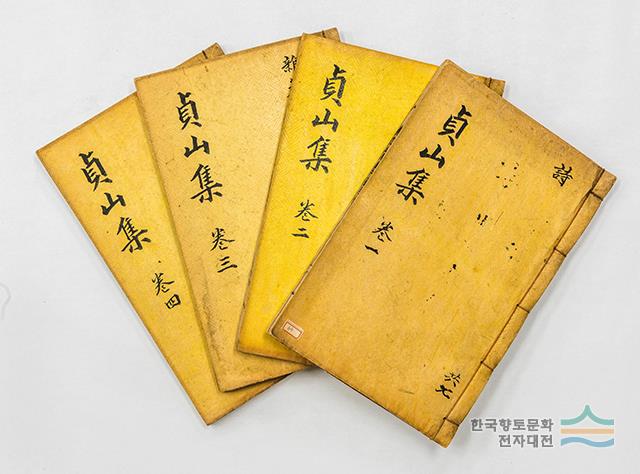 貞山集 卷四
貞山集 卷三
貞山集 卷二
貞山集 卷一
詩
共七
한국향토문화
전자대전